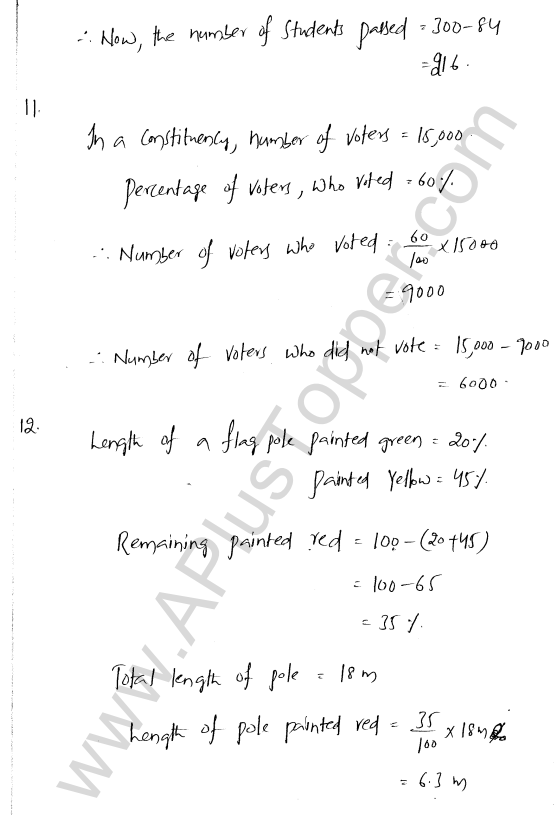 ∴ Now, the number of Students passed = 300-84
= 216.
11.
In a Constituency, number of voters = 15,000.
Percentage of voters, who voted = 60%.
∴ Number of voters who voted = 60/100 × 15000
= 9000
∴ Number of voters who did not vote = 15,000 - 9000
= 6000.
12.
Length of a flag pole painted green = 20%.
painted Yellow = 45%.
Remaining painted red = 100-(20+45)
= 100-65
= 35%.
Total length of pole = 18 m
Length of pole painted red = 35/100 × 18 m
= 6.3 m
www.APlusTopper.com